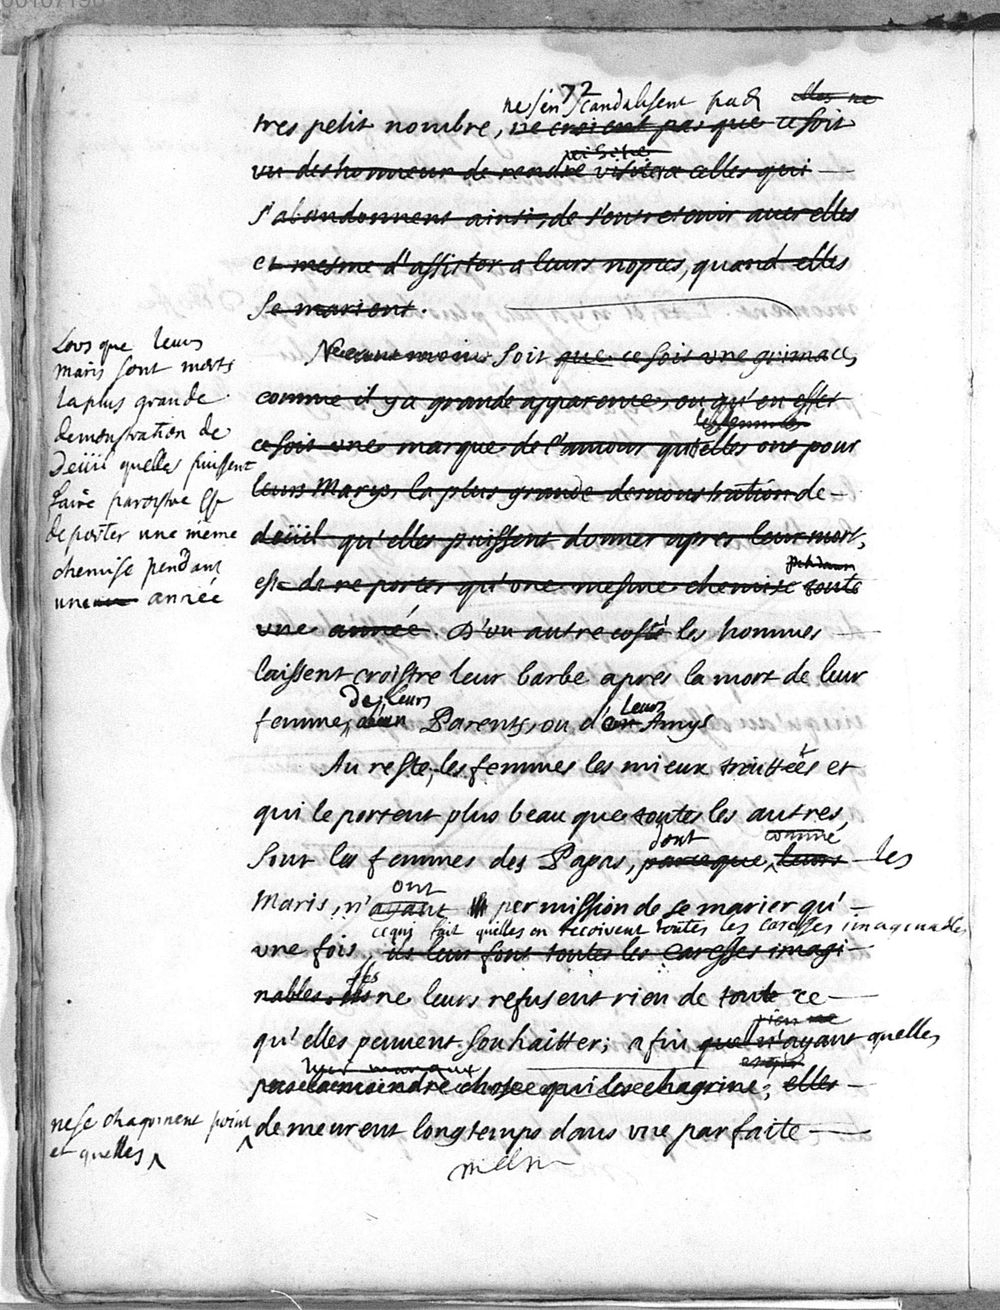 72
ne s'en scandalisent pas elles ne
tres petit nombre, ne croient pas que ce soit
un deshonneur de rendre visite a celles qui
s'abandonnent ainsi, de s'entretenir avec elles
et mesme d'assister a leurs nopces, quand elles
se marient.
Lors que leurs
maris sont morts
la plus grande
demonstration de
deüil quelles puissent
faire paroistre est
de porter une même
chemise pendant
une année
Neantmoins soit que ce soit une grimace,
comme il y a grande apparence, ou qu'en effet
les femmes
ce soit une marque de l'amour qu'elles ont pour
leurs Marys, la plus grande demonstration de
deüil qu'elles puissent donner apres leur mort,
pendant
est de ne porter qu'une mesme chemise toute
une année. D'un autre costé les hommes
laissent croistre leur barbe apres la mort de leur
de leurs leurs
femme, Parents, ou d'un Amys
Au reste, les femmes les mieux traittées et
qui le portent plus beau que toutes les autres,
dont comme
sont les femmes des Papas, parceque leurs les
ont
Maris, n'ayant permission de se marier qu'
ce qui fait quelles en recoivent toutes les caresses imaginables
une fois, ils leur font toutes les caresses imagi
nables. Ils ne leurs refusent rien de toute ce
rien ne
qu'elles peuvent souhaitter; afin que n'ayant quelles
pas la moindre chose qui les chagrine; elles
ne se chagrinent point
et quelles
demeurent longtemps dans une parfaite